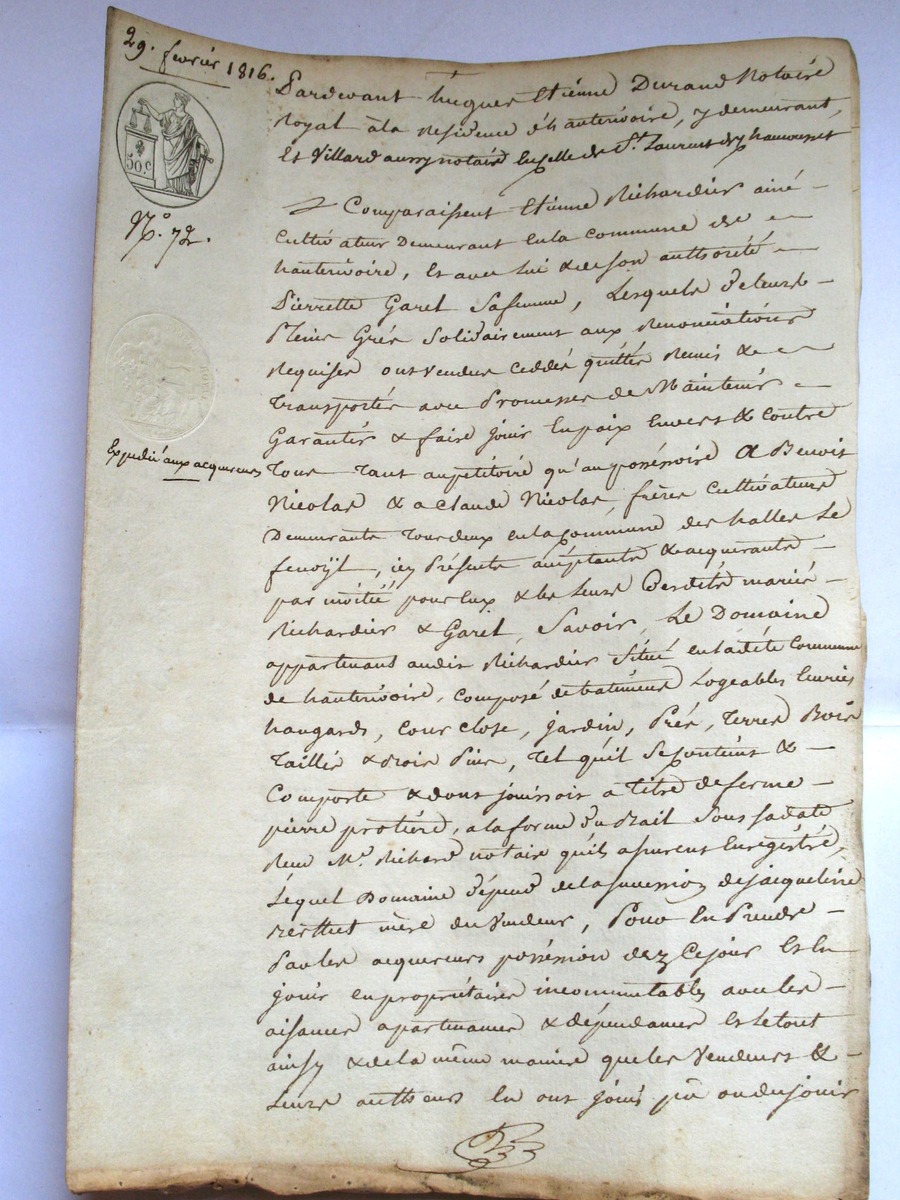 29. fevrier 1816.
50.c
N.° 72.
Expedié aux acquereurs
Pardevant hugues Etienne Durand Notaire
royal à la residence d'hauterivoire, y demeurant,
Et Villard aussy notaire en celle de St. Laurent de chamousset
Comparaissent Etienne Richardier ainé
Cultivateur Demeurant en la commune de
hauterivoire, Et avec lui & de son authorité
Pierrette Garel Sa femme, Lesquels de leurs
Pleins Grés Solidairement aux Renonciations
Requises ont vendus ceddés quittés Remis &
Transportés avec Promesse de Maintenir
Garantir & faire jouir En paix Envers & contre
Tous Tant au petitoire qu'au posséssoire A Benoit
Nicolas & a Claude Nicolas, frères Cultivateurs
Demeurants Tous deux en la commune des halles Le
fenoÿl, icy Présents acceptants & acquerants
par moitié pour Eux & les Leurs Desdits mariés
Richardier & Garel, Savoir, Le Domaine
appartenant audit Richardier Situé en ladite Commune
de hauterivoire, composé de batiments Logeables Ecuries
hangards, Cour close, jardin, Prés, Terres Bois
Taillis & bois Pins, Tel qu'il Se contient &
Comporte & dont jouissoit a Titre de ferme
pierre protière, a la forme d'un Bail Sous Sa date
Reçu Me. Richard notaire qu'ils assurent Enregistré,
Lequel Domaine dépend de la succession de jacqueline
mère du Vendeur, Pour En Prendre
Par les acquereurs posséssion dez Ce jour Et En
jouir en propriétaires incommutables avec les
aisances apartenances & dépendances Et le tout
ainsy & de la même manière que les Vendeurs &
Leurs autheurs En ont jouis pû ou du jouir